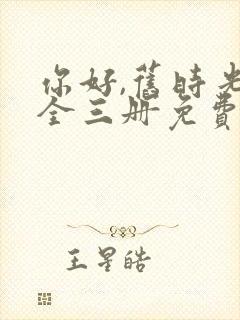 你好,舊時光
全三册免費
王星皓